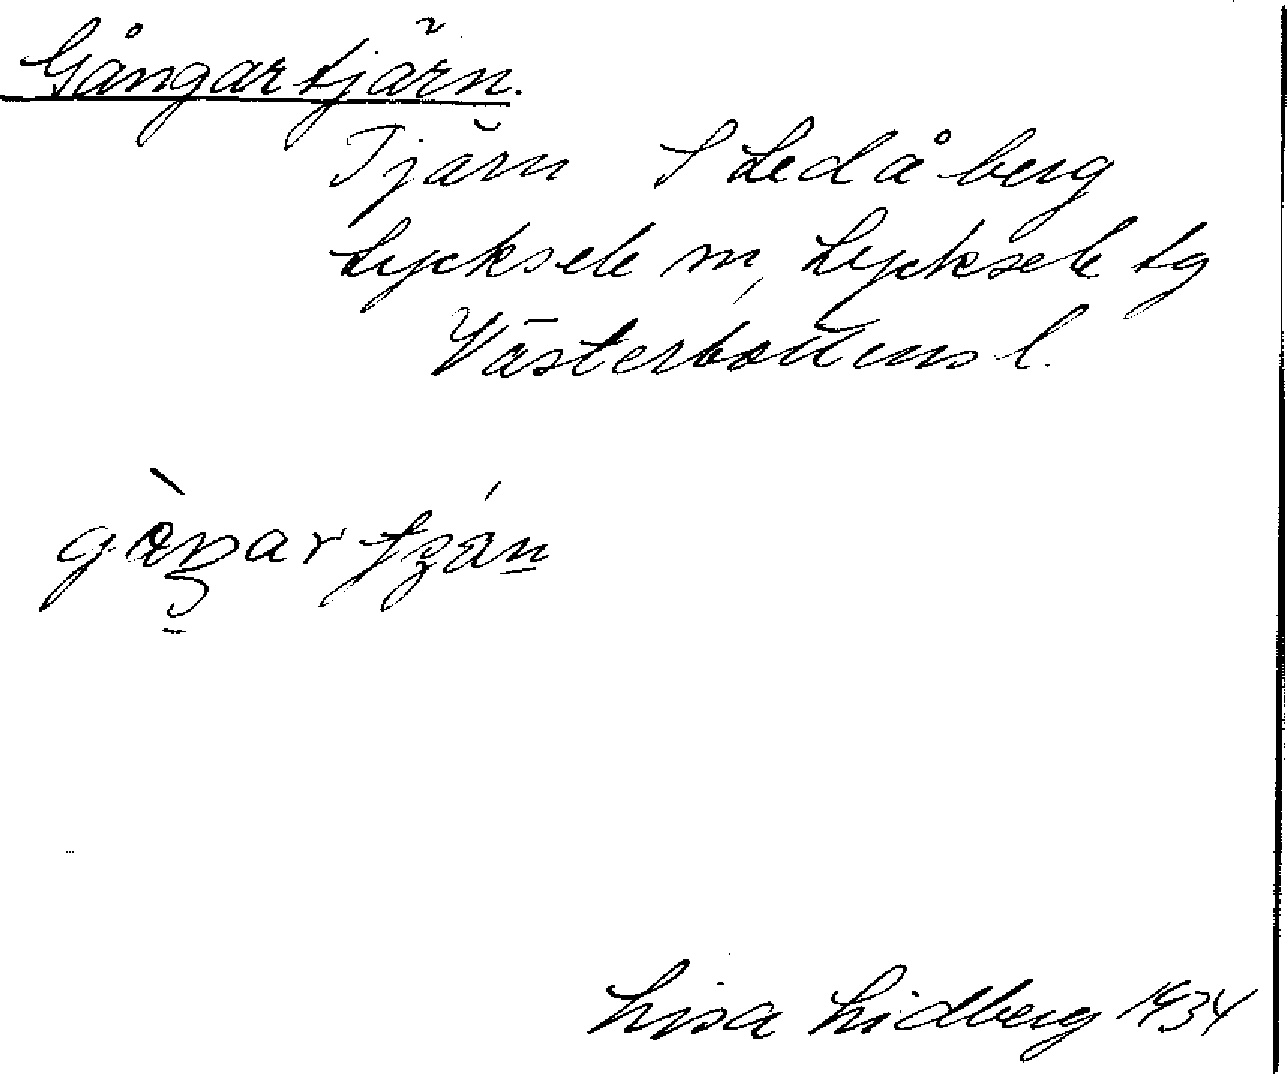 Gångartjärn.
Tjärn S Ledåberg
Lycksele m, Lycksele tg
Västerbottens l.
Lisa Lidberg 1934